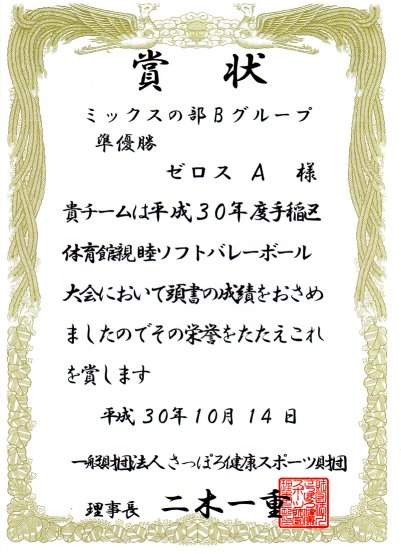 賞 状
ミックスの部Bグループ
準優勝
ゼロス A 様
貴チームは平成30年度手稲区
体育館親睦ソフトバレーボール
大会において頭書の成績をおさめ
ましたのでその栄誉をたたえこれ
を賞します
平成30年10月14日
一般財団法人さっぽろ健康スポーツ財団
理事長 二木一重